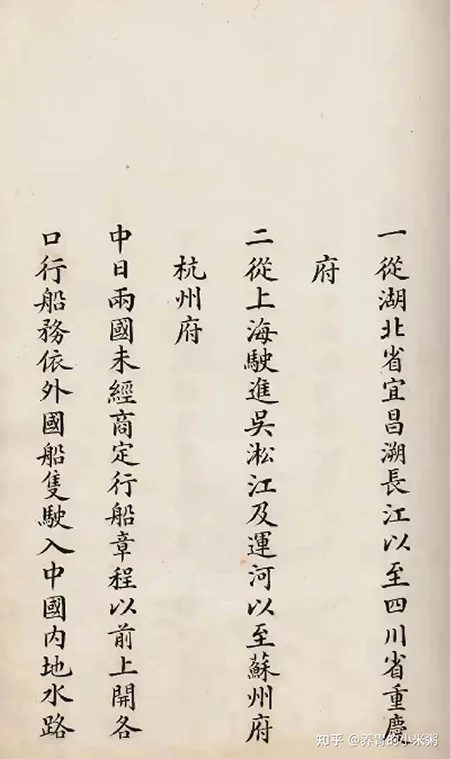 一從湖北省宜昌溯長江以至四川省重慶
府
二從上海駛進吳淞江及運河以至蘇州府
杭州府
中日兩國未經商定行船章程以前上開各
口行船務依外國船隻駛入中國內地水路
知乎 @养胃的小米粥